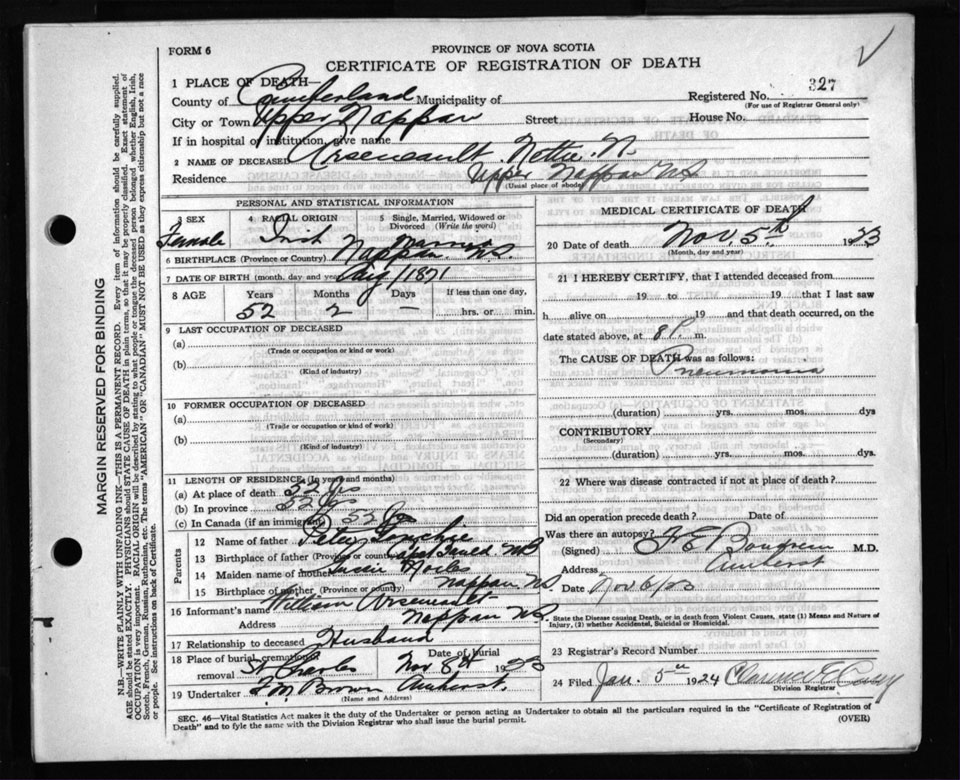 FORM 6
PROVINCE OF NOVA SCOTIA
CERTIFICATE OF REGISTRATION OF DEATH
1 PLACE OF DEATH—
County of Cumberland Municipality of
Registered No. 327
(For use of Registrar General only)
City or Town Upper Nappan Street House No.
If in hospital or institution, give name
2 NAME OF DECEASED Arseneault Nettie N.
Residence Upper Nappan N.S.
(Usual place of abode)
PERSONAL AND STATISTICAL INFORMATION
3 SEX 4 RACIAL ORIGIN 5 Single, Married, Widowed or Divorced (Write the word)
Female Irish Married
6 BIRTHPLACE (Province or Country) Nappan N.S.
7 DATE OF BIRTH (month, day and year) Aug 1 1871
8 AGE Years Months Days If less than one day,
52 2 — hrs. or min.
9 LAST OCCUPATION OF DECEASED
(a)
(Trade or occupation or kind or work)
(b)
(Kind of industry)
10 FORMER OCCUPATION OF DECEASED
(a)
(Trade or occupation or kind of work)
(b)
(Kind of industry)
11 LENGTH OF RESIDENCE (In years and months)
(a) At place of death 32 yrs
(b) In province 52 yrs
(c) In Canada (if an immigrant) 52 yrs
Parents
12 Name of father Peter
13 Birthplace of father (Province or country) N.B
14 Maiden name of mother
15 Birthplace of mother (Province or country) Nappan N.S.
16 Informant's name William Arseneault
Address Nappan N.S.
17 Relationship to deceased Husband
18 Place of burial, cremation or removal St Charles Date of burial Nov 8th 1923
19 Undertaker F. M. Brown Amherst.
(Name and Address)
MEDICAL CERTIFICATE OF DEATH
20 Date of death Nov. 5th 1923
(Month, day and year)
21 I HEREBY CERTIFY, that I attended deceased from
19 to 19 that I last saw
h alive on 19 and that death occurred, on
date stated above, at 8 P. m.
The CAUSE OF DEATH was as follows:
Pneumonia
(duration) yrs. mos. dys
CONTRIBUTORY
(Secondary)
(duration) yrs. mos. dys.
22 Where was disease contracted if not at place of death?
Did an operation precede death? Date of
Was there an autopsy?
(Signed) M.D.
Address Amherst
Date Nov 6/23
State the Disease causing Death, or in death from Violent Causes, state (1) Means and Nature of Injury, (2) whether Accidental, Suicidal or Homicidal.
23 Registrar's Record Number
24 Filed Jan. 5th 1924 Clarence E Casey
Division Registrar
SEC. 46—Vital Statistics Act makes it the duty of the Undertaker or person acting as Undertaker to obtain all the particulars required in the "Certificate of Registration of
Death" and to fyle the same with the Division Registrar who shall issue the burial permit.
(OVER)
MARGIN RESERVED FOR BINDING
N.B.—WRITE PLAINLY WITH UNFADING INK—THIS IS A PERMANENT RECORD. Every item of information should be carefully supplied.
AGE should be stated EXACTLY. PHYSICIANS should STATE CAUSE OF DEATH in plain terms, so that it may be properly classified. Exact statement of
OCCUPATION is very important. RACIAL ORIGIN will be described by stating to what people or tongue the deceased person belonged whether English, Irish,
Scotch, French, German, Russian, Ruthenian, etc. The terms "AMERICAN" OR "CANADIAN" MUST NOT BE USED as they express citizenship but not a race
or people. See instructions on back of Certificate.